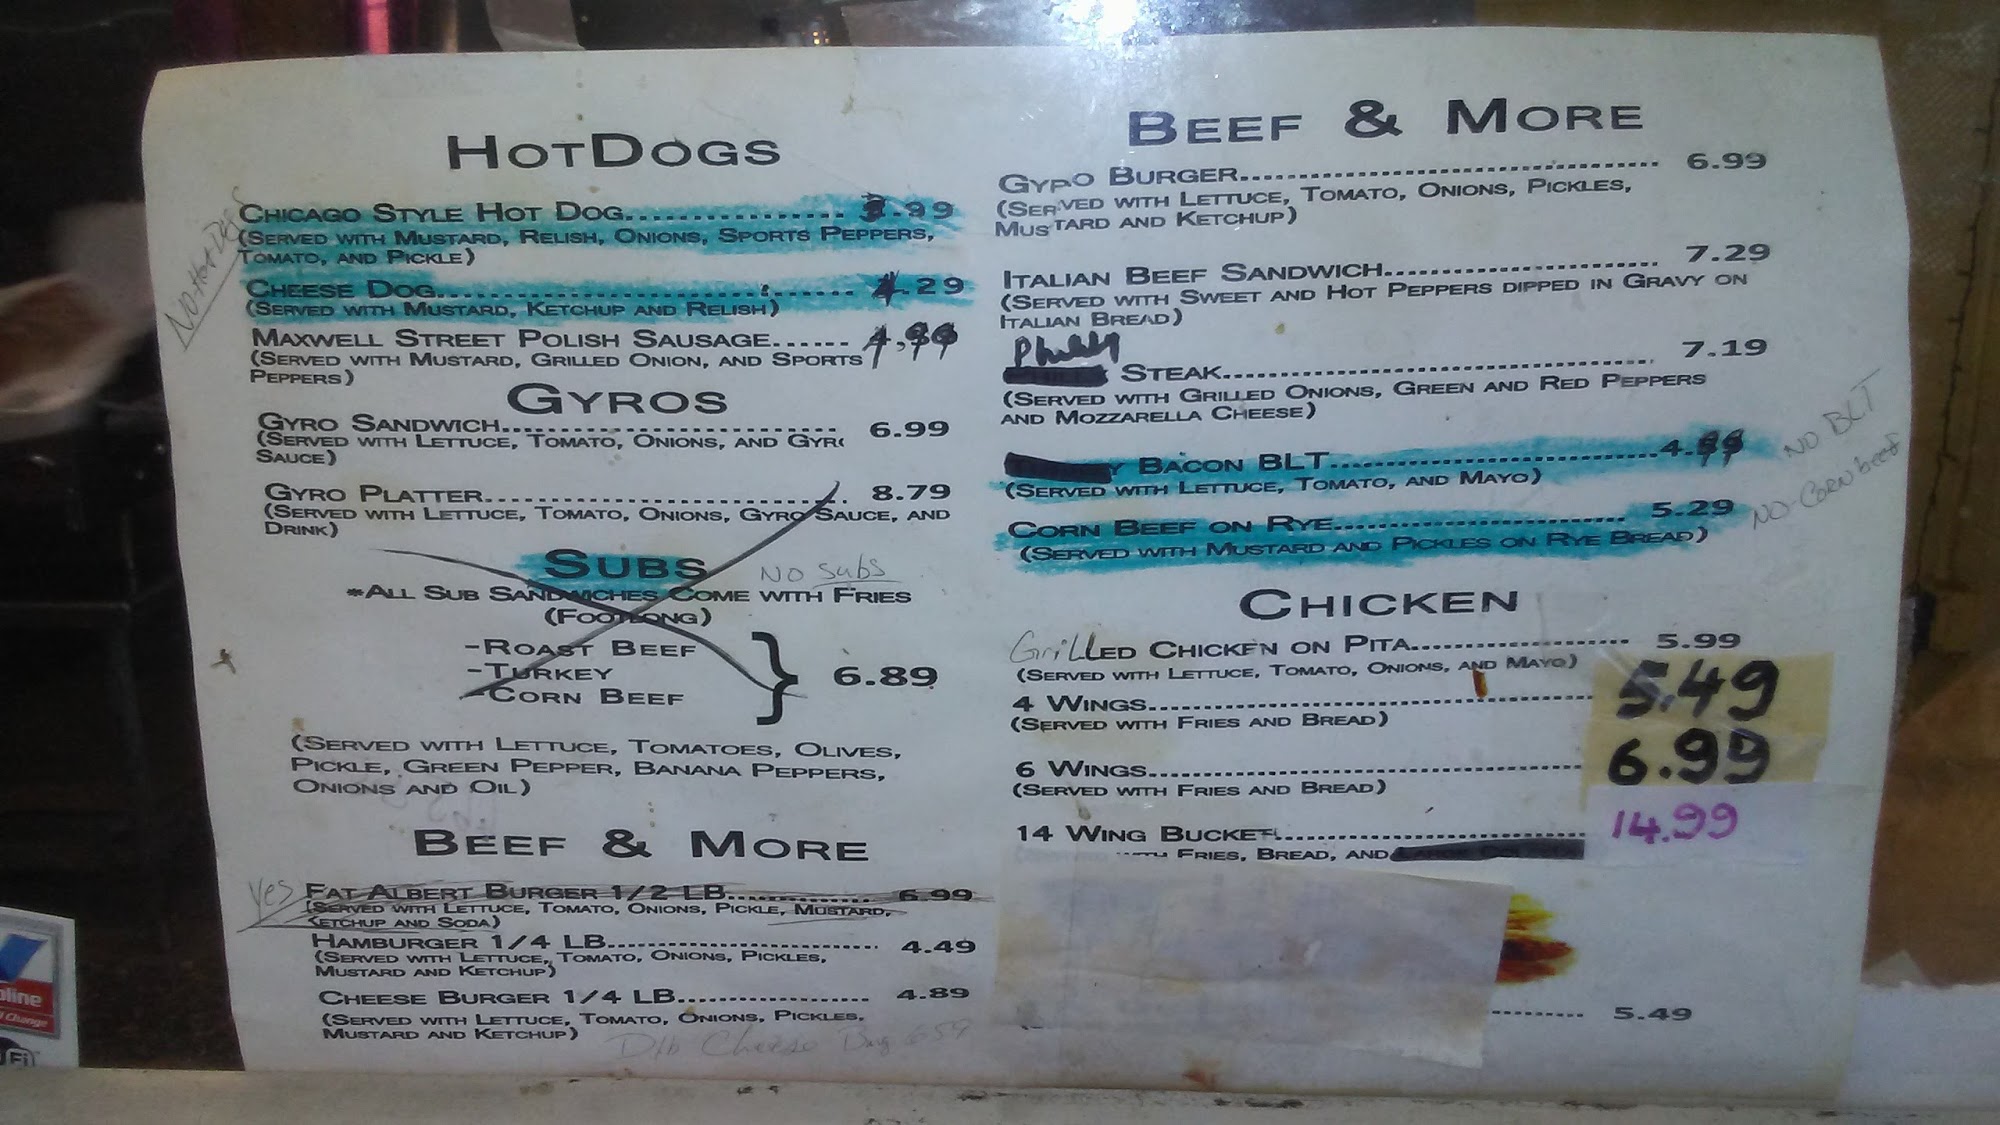 HOTDOGS
NO HOT DOGS
CHICAGO STYLE HOT DOG................. .99
(SERVED WITH MUSTARD, RELISH, ONIONS, SPORTS PEPPERS,
TOMATO, AND PICKLE)
CHEESE DOG................. 4.29
(SERVED WITH MUSTARD, KETCHUP AND RELISH)
MAXWELL STREET POLISH SAUSAGE...... 4.99
(SERVED WITH MUSTARD, GRILLED ONION, AND SPORTS
PEPPERS)
GYROS
GYRO SANDWICH................. 6.99
(SERVED WITH LETTUCE, TOMATO, ONIONS, AND GYRO
SAUCE)
GYRO PLATTER................. 8.79
(SERVED WITH LETTUCE, TOMATO, ONIONS, GYRO SAUCE, AND
DRINK)
SUBS
NO SUBS
*ALL SUB SANDWICHES COME WITH FRIES
(FOOTLONG)
-ROAST BEEF
-TURKEY
-CORN BEEF
6.89
(SERVED WITH LETTUCE, TOMATOES, OLIVES,
PICKLE, GREEN PEPPER, BANANA PEPPERS,
ONIONS AND OIL)
BEEF & MORE
yes
FAT ALBERT BURGER 1/2 LB............ 6.99
(SERVED WITH LETTUCE, TOMATO, ONIONS, PICKLE, MUSTARD,
KETCHUP AND SODA)
HAMBURGER 1/4 LB................. 4.49
(SERVED WITH LETTUCE, TOMATO, ONIONS, PICKLES,
MUSTARD AND KETCHUP)
CHEESE BURGER 1/4 LB............ 4.89
(SERVED WITH LETTUCE, TOMATO, ONIONS, PICKLES,
MUSTARD AND KETCHUP)
Dlb Cheese
BEEF & MORE
GYRO BURGER................. 6.99
(SERVED WITH LETTUCE, TOMATO, ONIONS, PICKLES,
MUSTARD AND KETCHUP)
ITALIAN BEEF SANDWICH................. 7.29
(SERVED WITH SWEET AND HOT PEPPERS DIPPED IN GRAVY ON
ITALIAN BREAD)
Philly
STEAK................. 7.19
(SERVED WITH GRILLED ONIONS, GREEN AND RED PEPPERS
AND MOZZARELLA CHEESE)
Y BACON BLT................. 4.99
(SERVED WITH LETTUCE, TOMATO, AND MAYO)
NO BLT
CORN BEEF ON RYE................. 5.29
(SERVED WITH MUSTARD AND PICKLES ON RYE BREAD)
NO-CORN beef
CHICKEN
GrilLED CHICKEN ON PITA................. 5.99
(SERVED WITH LETTUCE, TOMATO, ONIONS, AND MAYO)
4 WINGS................. 5.49
(SERVED WITH FRIES AND BREAD)
6 WINGS................. 6.99
(SERVED WITH FRIES AND BREAD)
14 WING BUCKET................. 14.99
WITH FRIES, BREAD, AND
............ 5.49
oline
l Change
Fi